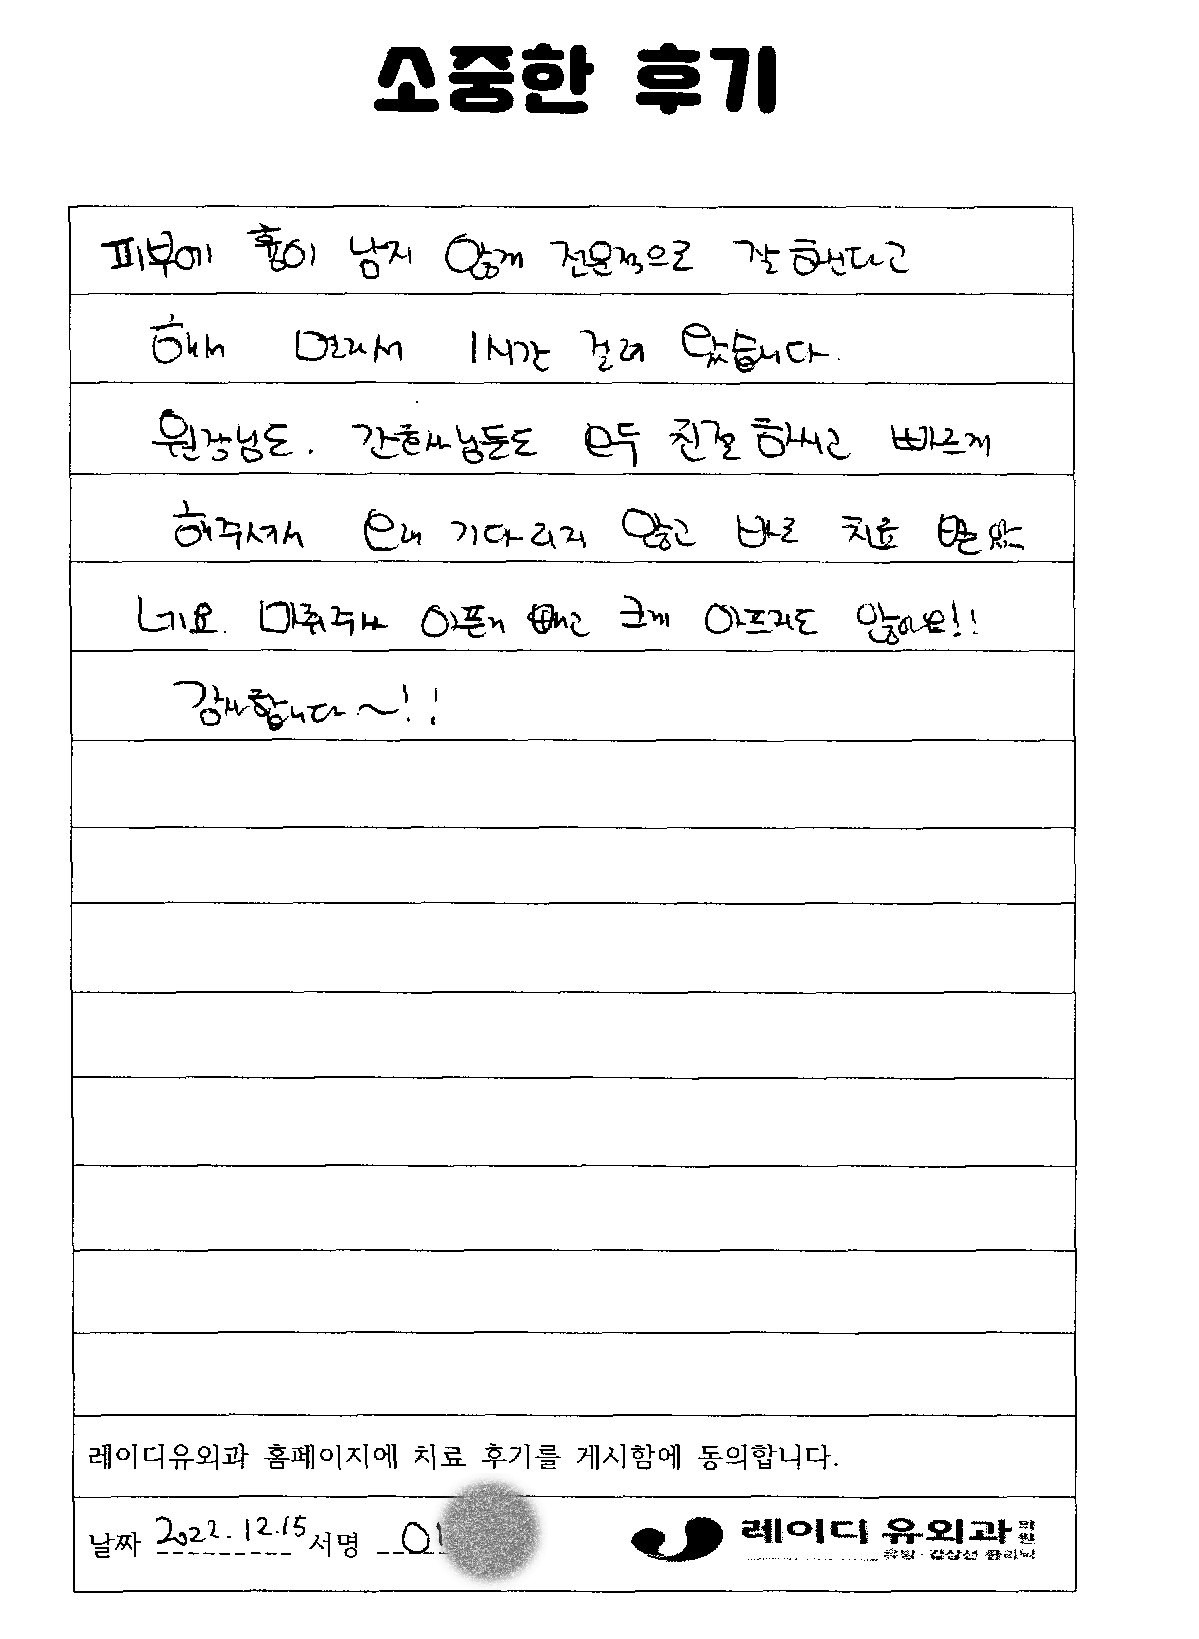 소중한 후기
피부에 흉이 남지 않게 전문적으로 잘 한다고
해서 멀리서 1시간 걸려 왔습니다.
원장님도. 간호사님들도 모두 친절하시고 빠르게
해주셔서 오래 기다리지 않고 바로 치료 받았
네요. 마취주사 아픈거 빼고 크게 아프지도 않아요!!
감사합니다~!!
레이디유외과 홈페이지에 치료 후기를 게시함에 동의합니다.
날짜 2022.12.15 서명 이
레이디 유외과 의원
유방·갑상선 클리닉